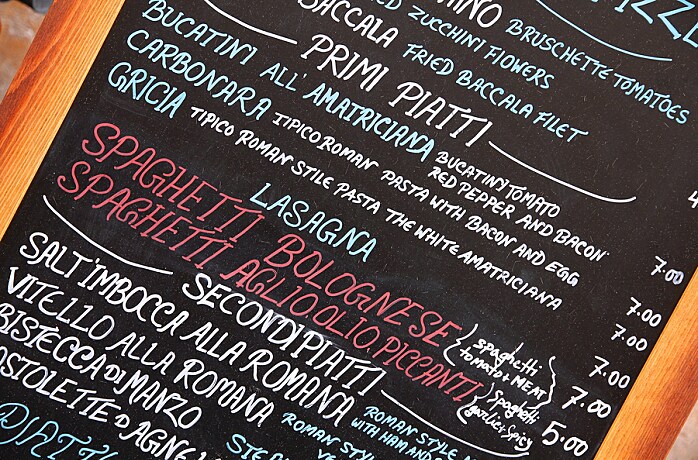 BACCALA FRIED ZUCCHINI FLOWERS BRUSCHETTE TOMATOES
FRIED BACCALA FILET
PRIMI PIATTI
BUCATINI ALL' AMATRICIANA BUCATINI TOMATO RED PEPPER AND BACON 7.00
CARBONARA TIPICO ROMAN PASTA WITH BACON AND EGG 7.00
GRICIA TIPICO ROMAN STILE PASTA THE WHITE AMATRICIANA 7.00
LASAGNA 7.00
SPAGHETTI BOLOGNESE {spaghetti tomato & MEAT} 7.00
SPAGHETTI AGLIO OLIO PICCANTI {spaghetti garlic & spicy} 5.00
SECONDI PIATTI
SALT'IMBOCCA ALLA ROMANA ROMAN STYLE
WITH HAM AND
VITELLO ALLA ROMANA ROMAN STYLE
BISTECCA DI MANZO